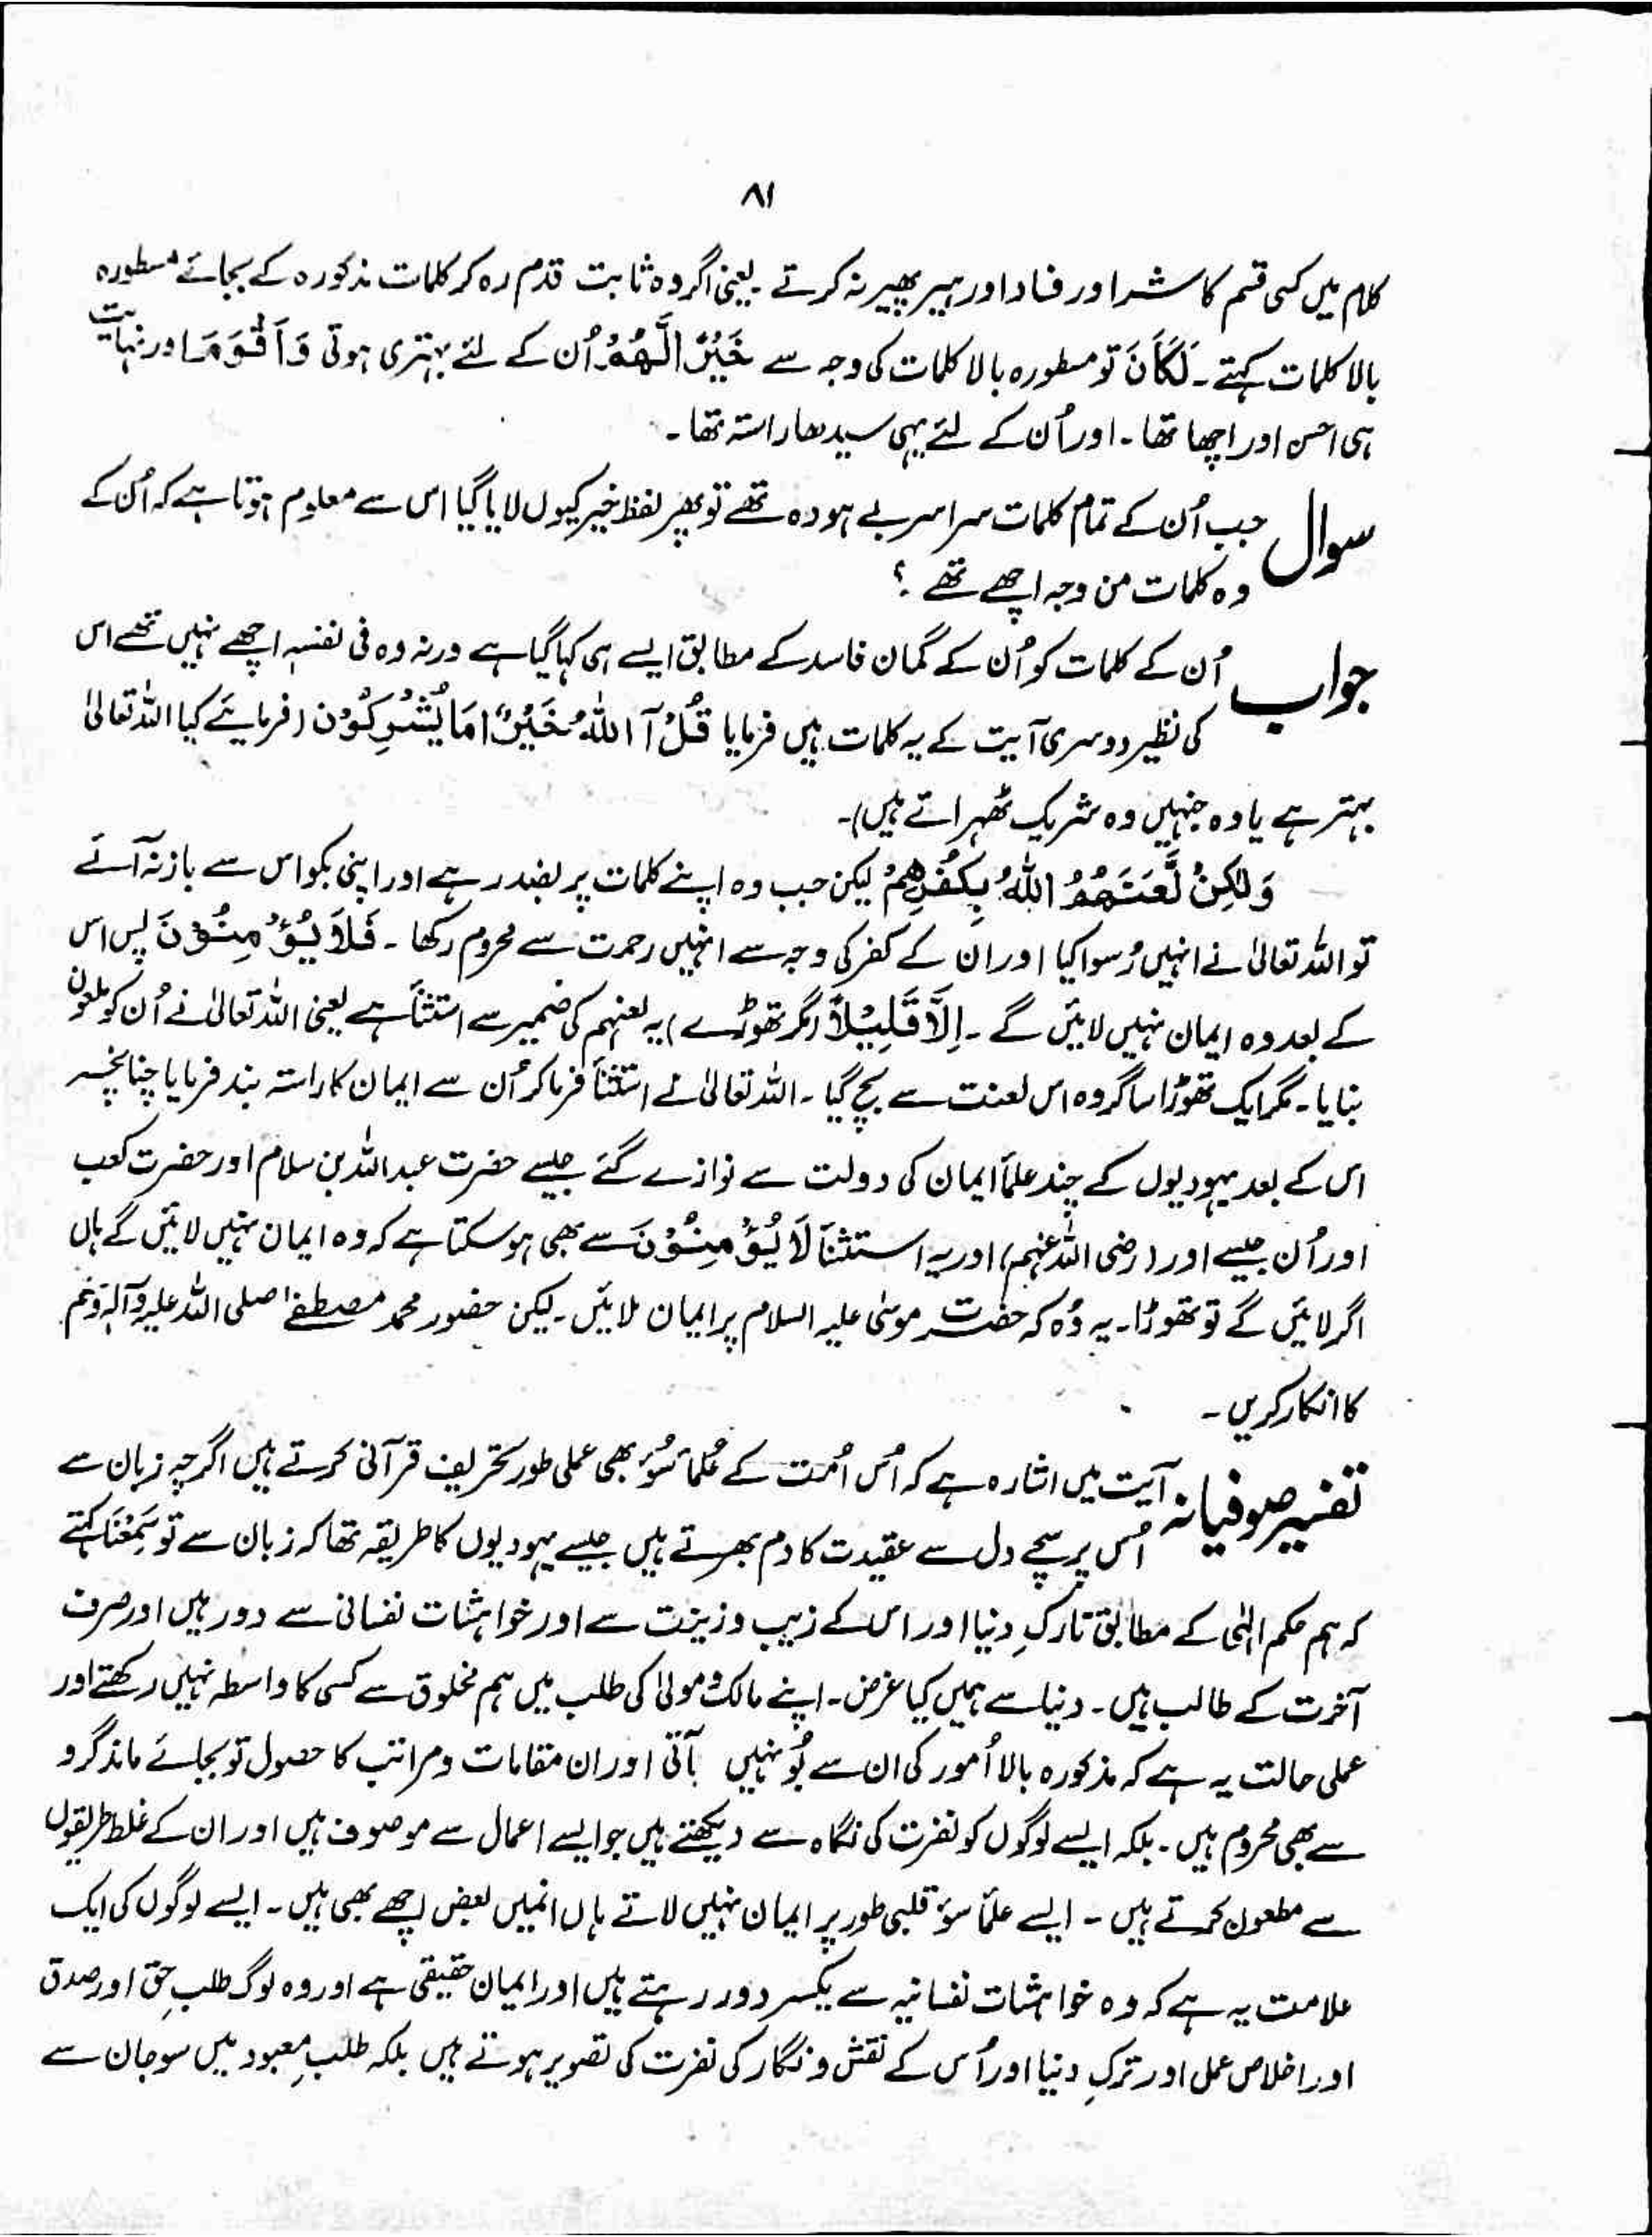 ۸۱
کلام میں کسی قسم کا شر اور فساد اور ہیر پھیر نہ کرتے یعنی اگر وہ ثابت قدم رہ کر کلمات مذکورہ کے بجائے مسطورہ
بالا کلمات کہتے۔ لَكَانَ تو مسطورہ بالا کلمات کی وجہ سے خَيْرًا لَّهُمْ اُن کے لئے بہتری ہوتی وَ اَقْوَمَ اور نہایت
ہی احسن اور اچھا تھا۔ اور اُن کے لئے یہی سیدھا راستہ تھا۔
سوال جب اُن کے تمام کلمات سراسر بے ہودہ تھے تو پھر لفظ خیر کیوں لایا گیا اس سے معلوم ہوتا ہے کہ اُن کے
وہ کلمات من وجہ اچھے تھے ؟
جواب اُن کے کلمات کو اُن کے گمان فاسد کے مطابق ایسے ہی کہا گیا ہے ورنہ وہ فی نفسہٖ اچھے نہیں تھے اس
کی نظیر دوسری آیت کے یہ کلمات ہیں فرمایا قُلْ آ اللهُ خَيْرٌ اَمَا يُشْرِكُوْن (فرمایئے کیا اللہ تعالیٰ
بہتر ہے یا وہ جنہیں وہ شریک ٹھہراتے ہیں)۔
وَلٰكِنْ لَّعَنَهُمُ اللهُ بِكُفْرِهِمْ لیکن جب وہ اپنے کلمات پر بضد رہے اور اپنی بکواس سے باز نہ آئے
تو اللہ تعالیٰ نے انہیں رُسوا کیا اور ان کے کفر کی وجہ سے انہیں رحمت سے محروم رکھا۔ فَلَا يُؤْمِنُوْنَ پس اس
کے بعد وہ ایمان نہیں لائیں گے۔ اِلَّا قَلِيْلًا (مگر تھوڑے) یہ لعنہم کی ضمیر سے استثنأ ہے یعنی اللہ تعالیٰ نے اُن کو ملعون
بنایا۔ مگر ایک تھوڑا سا گروہ اس لعنت سے بچ گیا۔ اللہ تعالیٰ نے استثنأ فرما کر اُن سے ایمان کا راستہ بند فرمایا چنانچہ
اس کے بعد یہودیوں کے چند علمأ ایمان کی دولت سے نوازے گئے جیسے حضرت عبداللہ بن سلام اور حضرت کعب
اور اُن جیسے اور (رضی اللہ عنہم) اور یہ استثنأ لَا يُؤْمِنُوْنَ سے بھی ہو سکتا ہے کہ وہ ایمان نہیں لائیں گے ہاں
اگر لائیں گے تو تھوڑا۔ یہ وُہ کہ حضرت موسٰی علیہ السلام پر ایمان لائیں۔ لیکن حضور محمد مصطفےٰ صلی اللہ علیہ وآلہ وسلم
کا انکار کریں۔
تفسیر صوفیانہ آیت میں اشارہ ہے کہ اُس اُمت کے عُلمأ سُوٴ بھی عملی طور تحریف قرآنی کرتے ہیں اگرچہ زبان سے
اُس پر سچے دل سے عقیدت کا دم بھرتے ہیں جیسے یہودیوں کا طریقہ تھا کہ زبان سے تو سَمِعْنَا کہتے
کہ ہم حکم الٰہی کے مطابق تارکِ دنیا اور اس کے زیب و زینت سے اور خواہشات نفسانی سے دور ہیں اور صرف
آخرت کے طالب ہیں۔ دنیا سے ہمیں کیا غرض۔ اپنے مالک و مولیٰ کی طلب میں ہم مخلوق سے کسی کا واسطہ نہیں رکھتے اور
عملی حالت یہ ہے کہ مذکورہ بالا اُمور کی ان سے بُو نہیں آتی اور ان مقامات و مراتب کا حصول تو بجائے ماند گرد
سے بھی محروم ہیں۔ بلکہ ایسے لوگوں کو نفرت کی نگاہ سے دیکھتے ہیں جو ایسے اعمال سے موصوف ہیں اور ان کے غلط طریقوں
سے مطعون کرتے ہیں۔ ایسے علمأ سوٴ قلبی طور پر ایمان نہیں لاتے ہاں انمیں بعض اچھے بھی ہیں۔ ایسے لوگوں کی ایک
علامت یہ ہے کہ وہ خواہشات نفسانیہ سے یکسر دور رہتے ہیں اور ایمان حقیقی ہے اور وہ لوگ طلب حق اور صدق
اور اخلاص عمل اور ترکِ دنیا اور اُس کے نقش و نگار کی نفرت کی تصویر ہوتے ہیں بلکہ طلبِ معبود میں سو جان سے